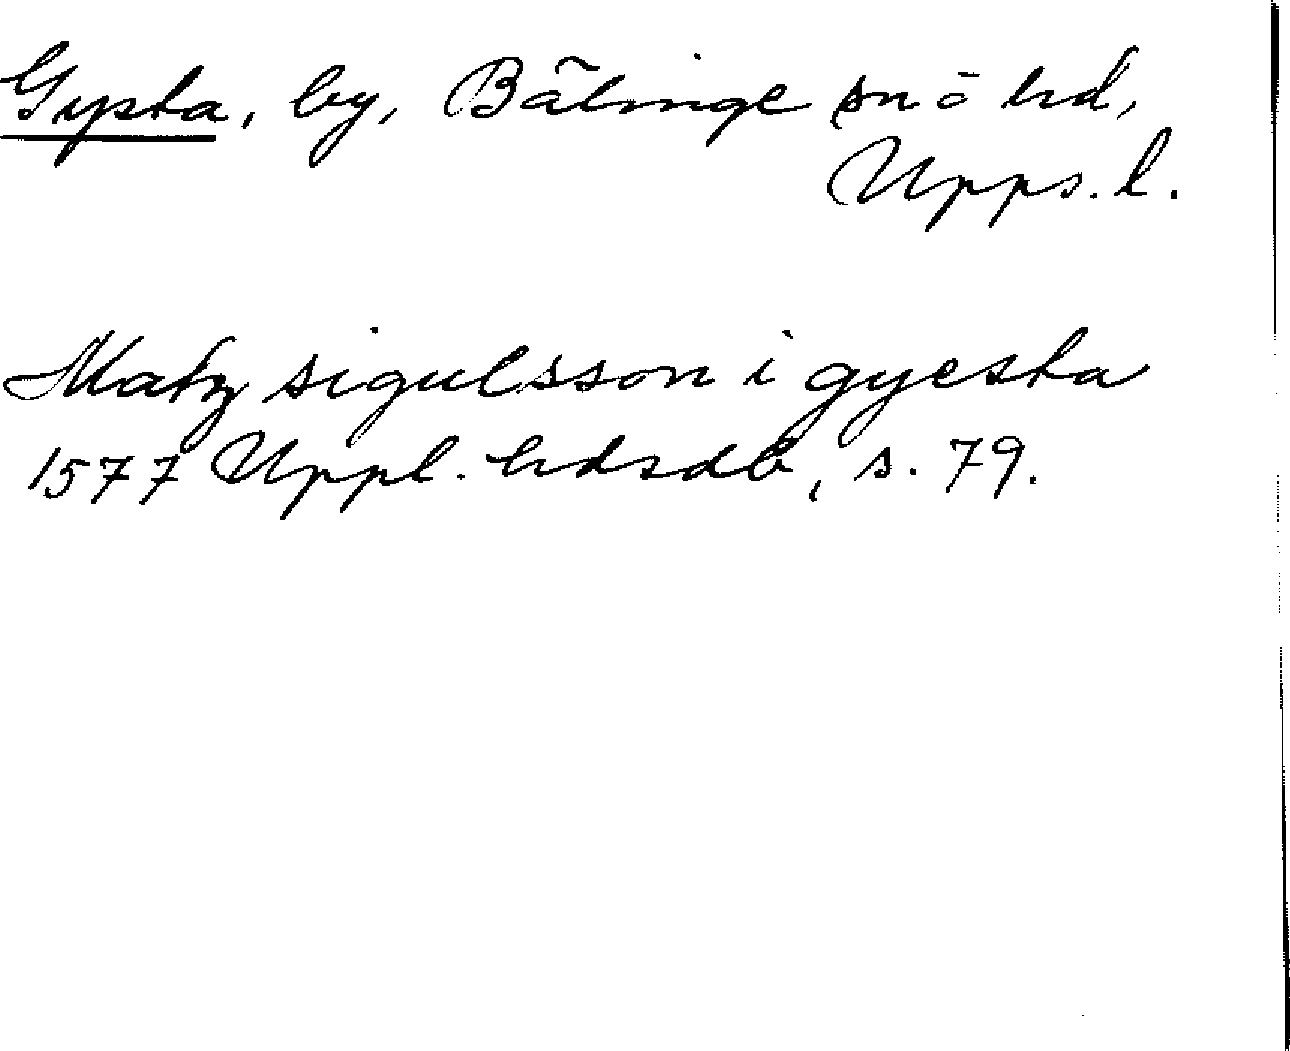 Gysta, by, Bälinge sn ō hd,
Upps. l.
Matz sigulsson i gyesta
1577 Uppl. hdsdb, s. 79.